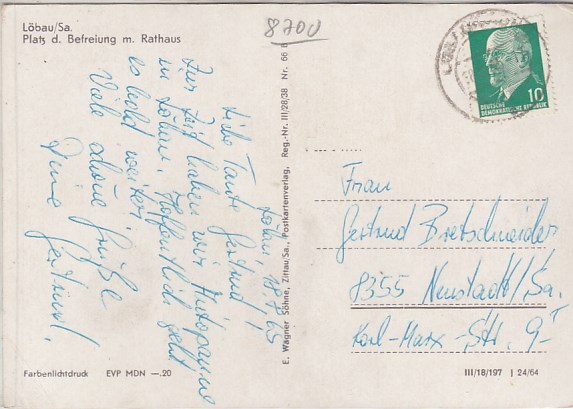 Löbau/Sa.
Platz d. Befreiung m. Rathaus
8700
DEUTSCHE
DEMOKRATISCHE REPUBLIK
10
Löbau, 18.8.65
Liebe Tante Gertrud!
Zur Zeit haben wir Autopanne
in Löbau. Hoffentlich geht
es bald weiter.
Viele schöne Grüße
Deine
E. Wagner Söhne, Zittau/Sa., Postkartenverlag, Reg.-Nr. III/28/38 Nr. 66 B
Frau
Gertrud Bretschneider
8355 Neustadt/Sa.
Karl-Marx-Str. 9
Farbenlichtdruck EVP MDN —.20
III/18/197 J 24/64